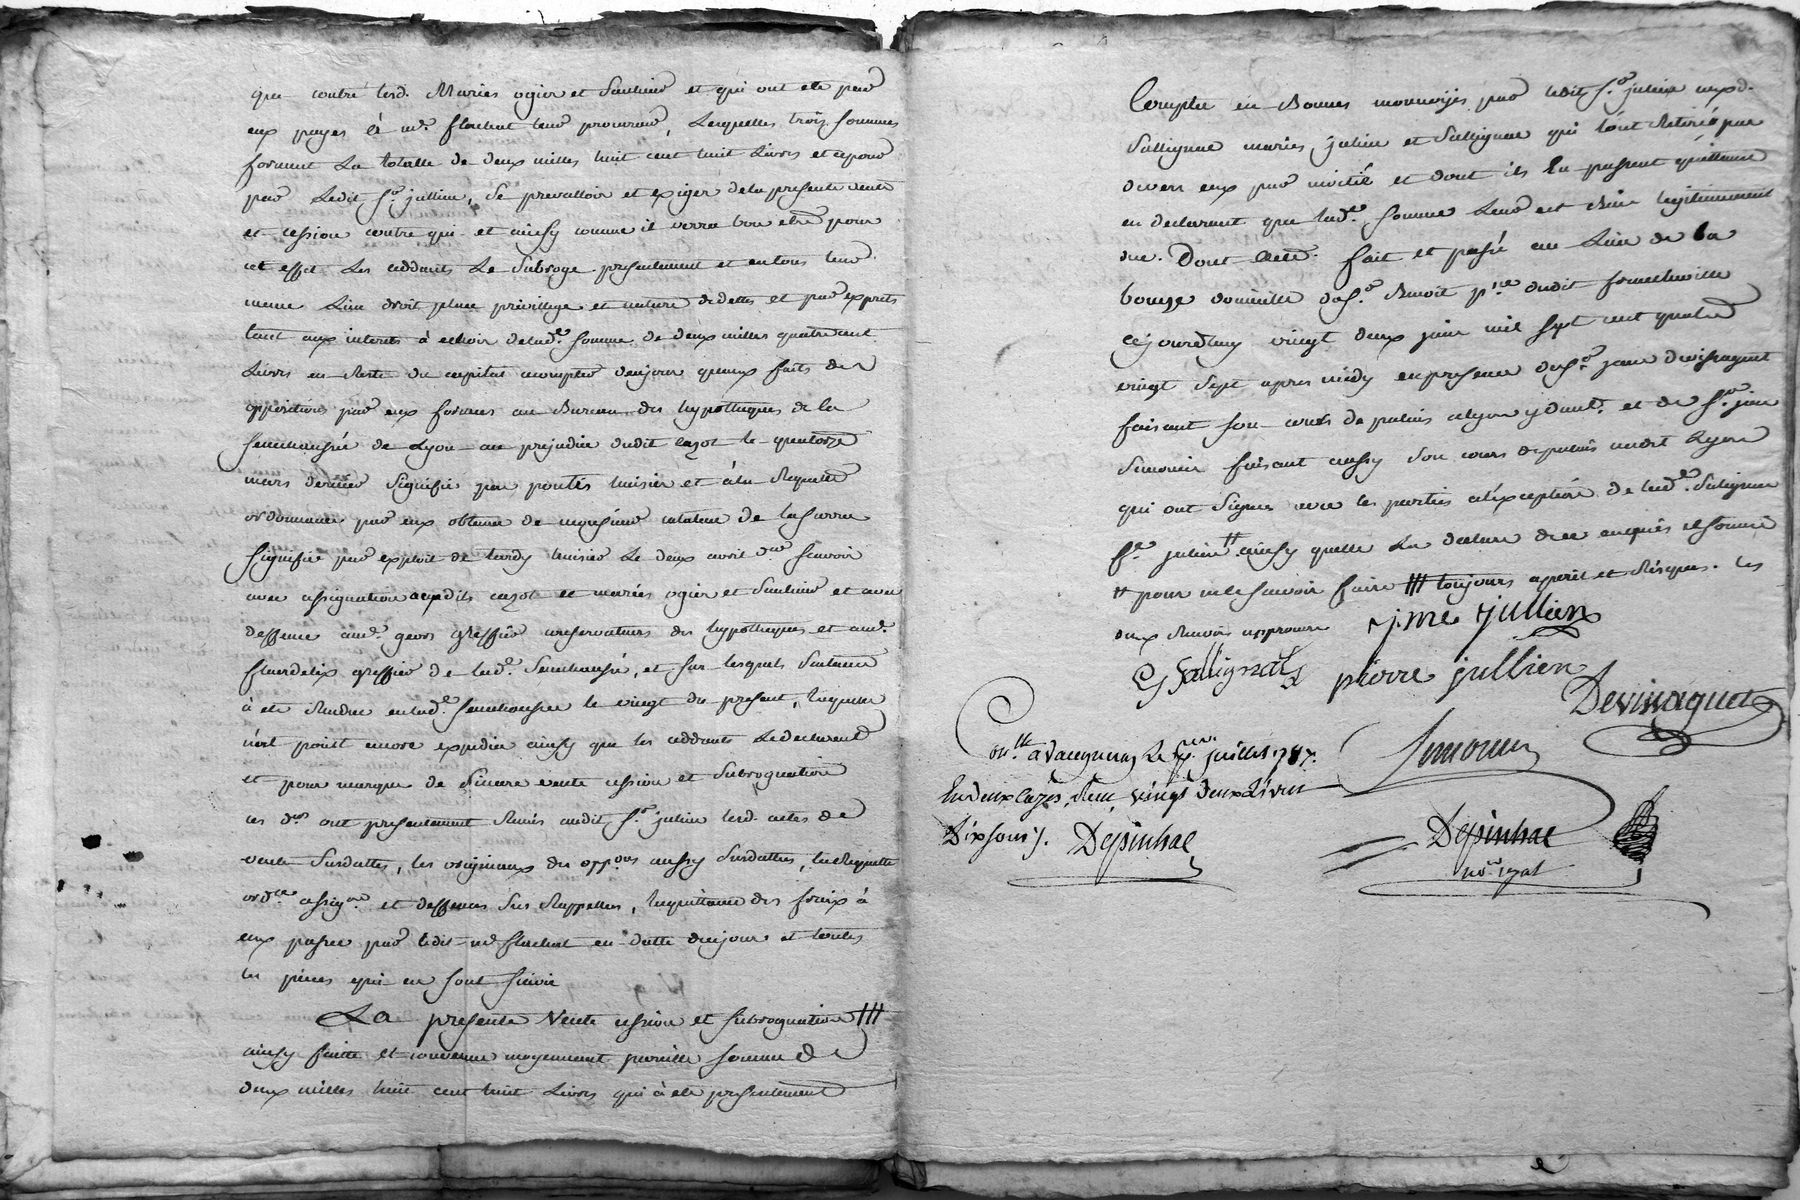 que contre lesd. Mariés ogier et Saulnier et qui ont ete par
eux payes à me. flachat leur procureur, Lesquelles trois sommes
forment La totalle de deux milles huit cent huit Livres et a pour
par Ledit sr. jullien, Se prevalloir et exiger de la presente vente
et cession contre qui et ainsy comme il verra bon etre pour
cet effet Les ceddants Le Subroge presentement et en tous leur
meme Lieu droit place privillege et nature de dettes et par exprès
tant aux interets à echoir de lad.e somme de deux milles quatre cent
Livres en Reste du capital a compter de ce jour qu'aux faits des
oppositions par eux formés au Bureau des hypotheques de la
senechaussée de Lyon au prejudice dudit cazot le quatorze
mars dernier Signifié par huisier et à la Requette
ordonnance par eux obtenue de monsieur
Signifié par exploit de huisier Le deux avril dr. Scavoir
avec assignation auxdits cazot et mariés ogier et Saulnier et avec
deffense aud. greffier conservateur des hypotheques et aud.
greffier de lad.e Senechaussée, et sur lesquels Sentence
à ete Rendue en lad.e senechaussee le vingt du present, laquelle
n'est point encore expediée ainsy que les ceddants Le declarent
et pour marque de Sincere vente cession et Subrogation
ces drs ont presentement Remis audit Sr. julien lesd. actes de
vente Susdattes, les originaux des oppons aussy Susdattes, la Requette
ordce assigon et deffences Sus Rappelles, la quittance des fraix à
eux passée par ledit me flachat en datte de ce jour et toutes
les pieces qui en sont Suivie
La presente Vente cession et subrogation ///
ainsy faitte et convenue moyennant pareille somme de
deux milles huit cent huit Livres qui à ete presentement
Comptée en Bonnes monnoyes par ledit sr. julien auxd.
Sallignat mariés, julien et Sallignat qui l'ont Retiré par
devers eux par moitié et dont ils En passent quittance
en declarant que lad.e somme Leur est Bien legitimement
due. Dont acte. fait et passé au Lieu de la
bouge domicille de sr. Benoit dudit
cejourdhuy vingt deux juin mil sept cent quatre
vingt Sept apres midy en presence de sr. jean devissaguet
faisant son cours de palais a Lyon y dant. et de sr. jean
Simonin faisant aussy Son cours de palais audit Lyon
qui ont Signes avec les parties a l'exception de lad.e Salignat
fe. julien # ainsy quelle La declaré de ce enquis et sommée
# pour ne le scavoir faire /// toujours a peril et Risques. les
deux Renvois approuvés j. me jullien
Sallignat pierre jullien
Devissaguet
Simonin
Conlle a vaugneray Le pr. juillet 1787.
En deux cazes, Reçu vingt deux Livres
Dix sous. Despinhac
Despinhac
nore royal